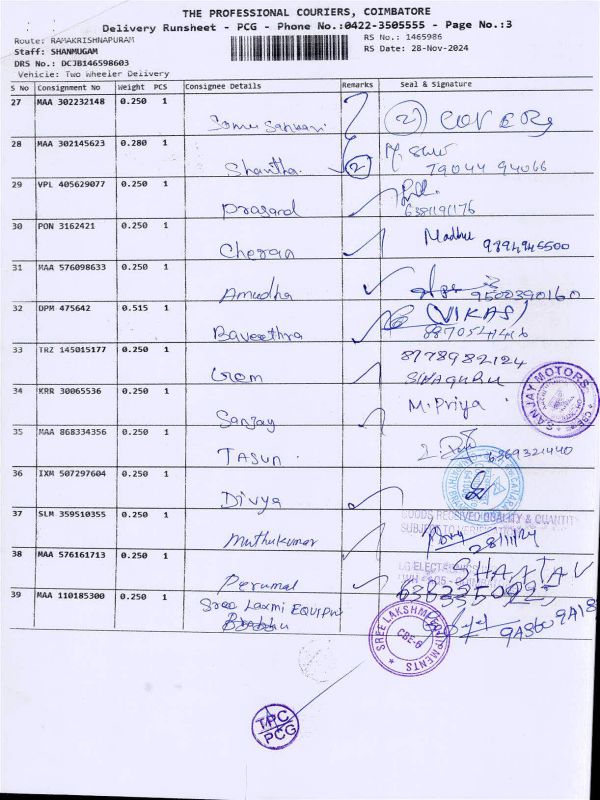 THE PROFESSIONAL COURIERS, COIMBATORE
Delivery Runsheet - PCG - Phone No.:0422-3505555 - Page No.:3
Route: RAMAKRISHNAPURAM
RS No.: 1465986
Staff: SHANMUGAM
RS Date: 28-Nov-2024
DRS No.: DCJB146598603
Vehicle: Two Wheeler Delivery
S No Consignment No Weight PCS Consignee Details Remarks Seal & Signature
27 MAA 302232148 0.250 1
28 MAA 302145623 0.280 1 Shantha 2
79044 94066
29 VPL 405629077 0.250 1 Prasard
6381191176
30 PON 3162421 0.250 1 Cheran Madhu 9894946500
31 MAA 576098633 0.250 1 Amudha 9500390160
32 DPM 475642 0.515 1 Baveethra (VIKAS)
33 TRZ 145015177 0.250 1 8778982124
SIVAGURU
34 KRR 30065536 0.250 1 Sanjay M.Priya
SANJAY MOTORS
35 MAA 868334356 0.250 1 TASUN 6369321440
36 IXM 507297604 0.250 1 Divya
37 SLM 359510355 0.250 1 Muthukumar
GOODS RECEIVED QUALITY & QUANTIT
SUBJECT TO
28/11/24
38 MAA 576161713 0.250 1 Perumal
LG ELECTRONICS
39 MAA 110185300 0.250 1 Sree Laxmi EQUIPM
SREE LAKSHME EQUIPMENTS
CBE-6
TPC
PCG